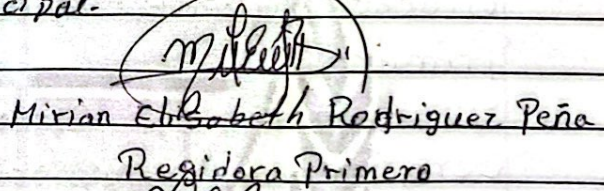 cipal.
Mirian Elisabeth Rodriguez Peña
Regidora Primero